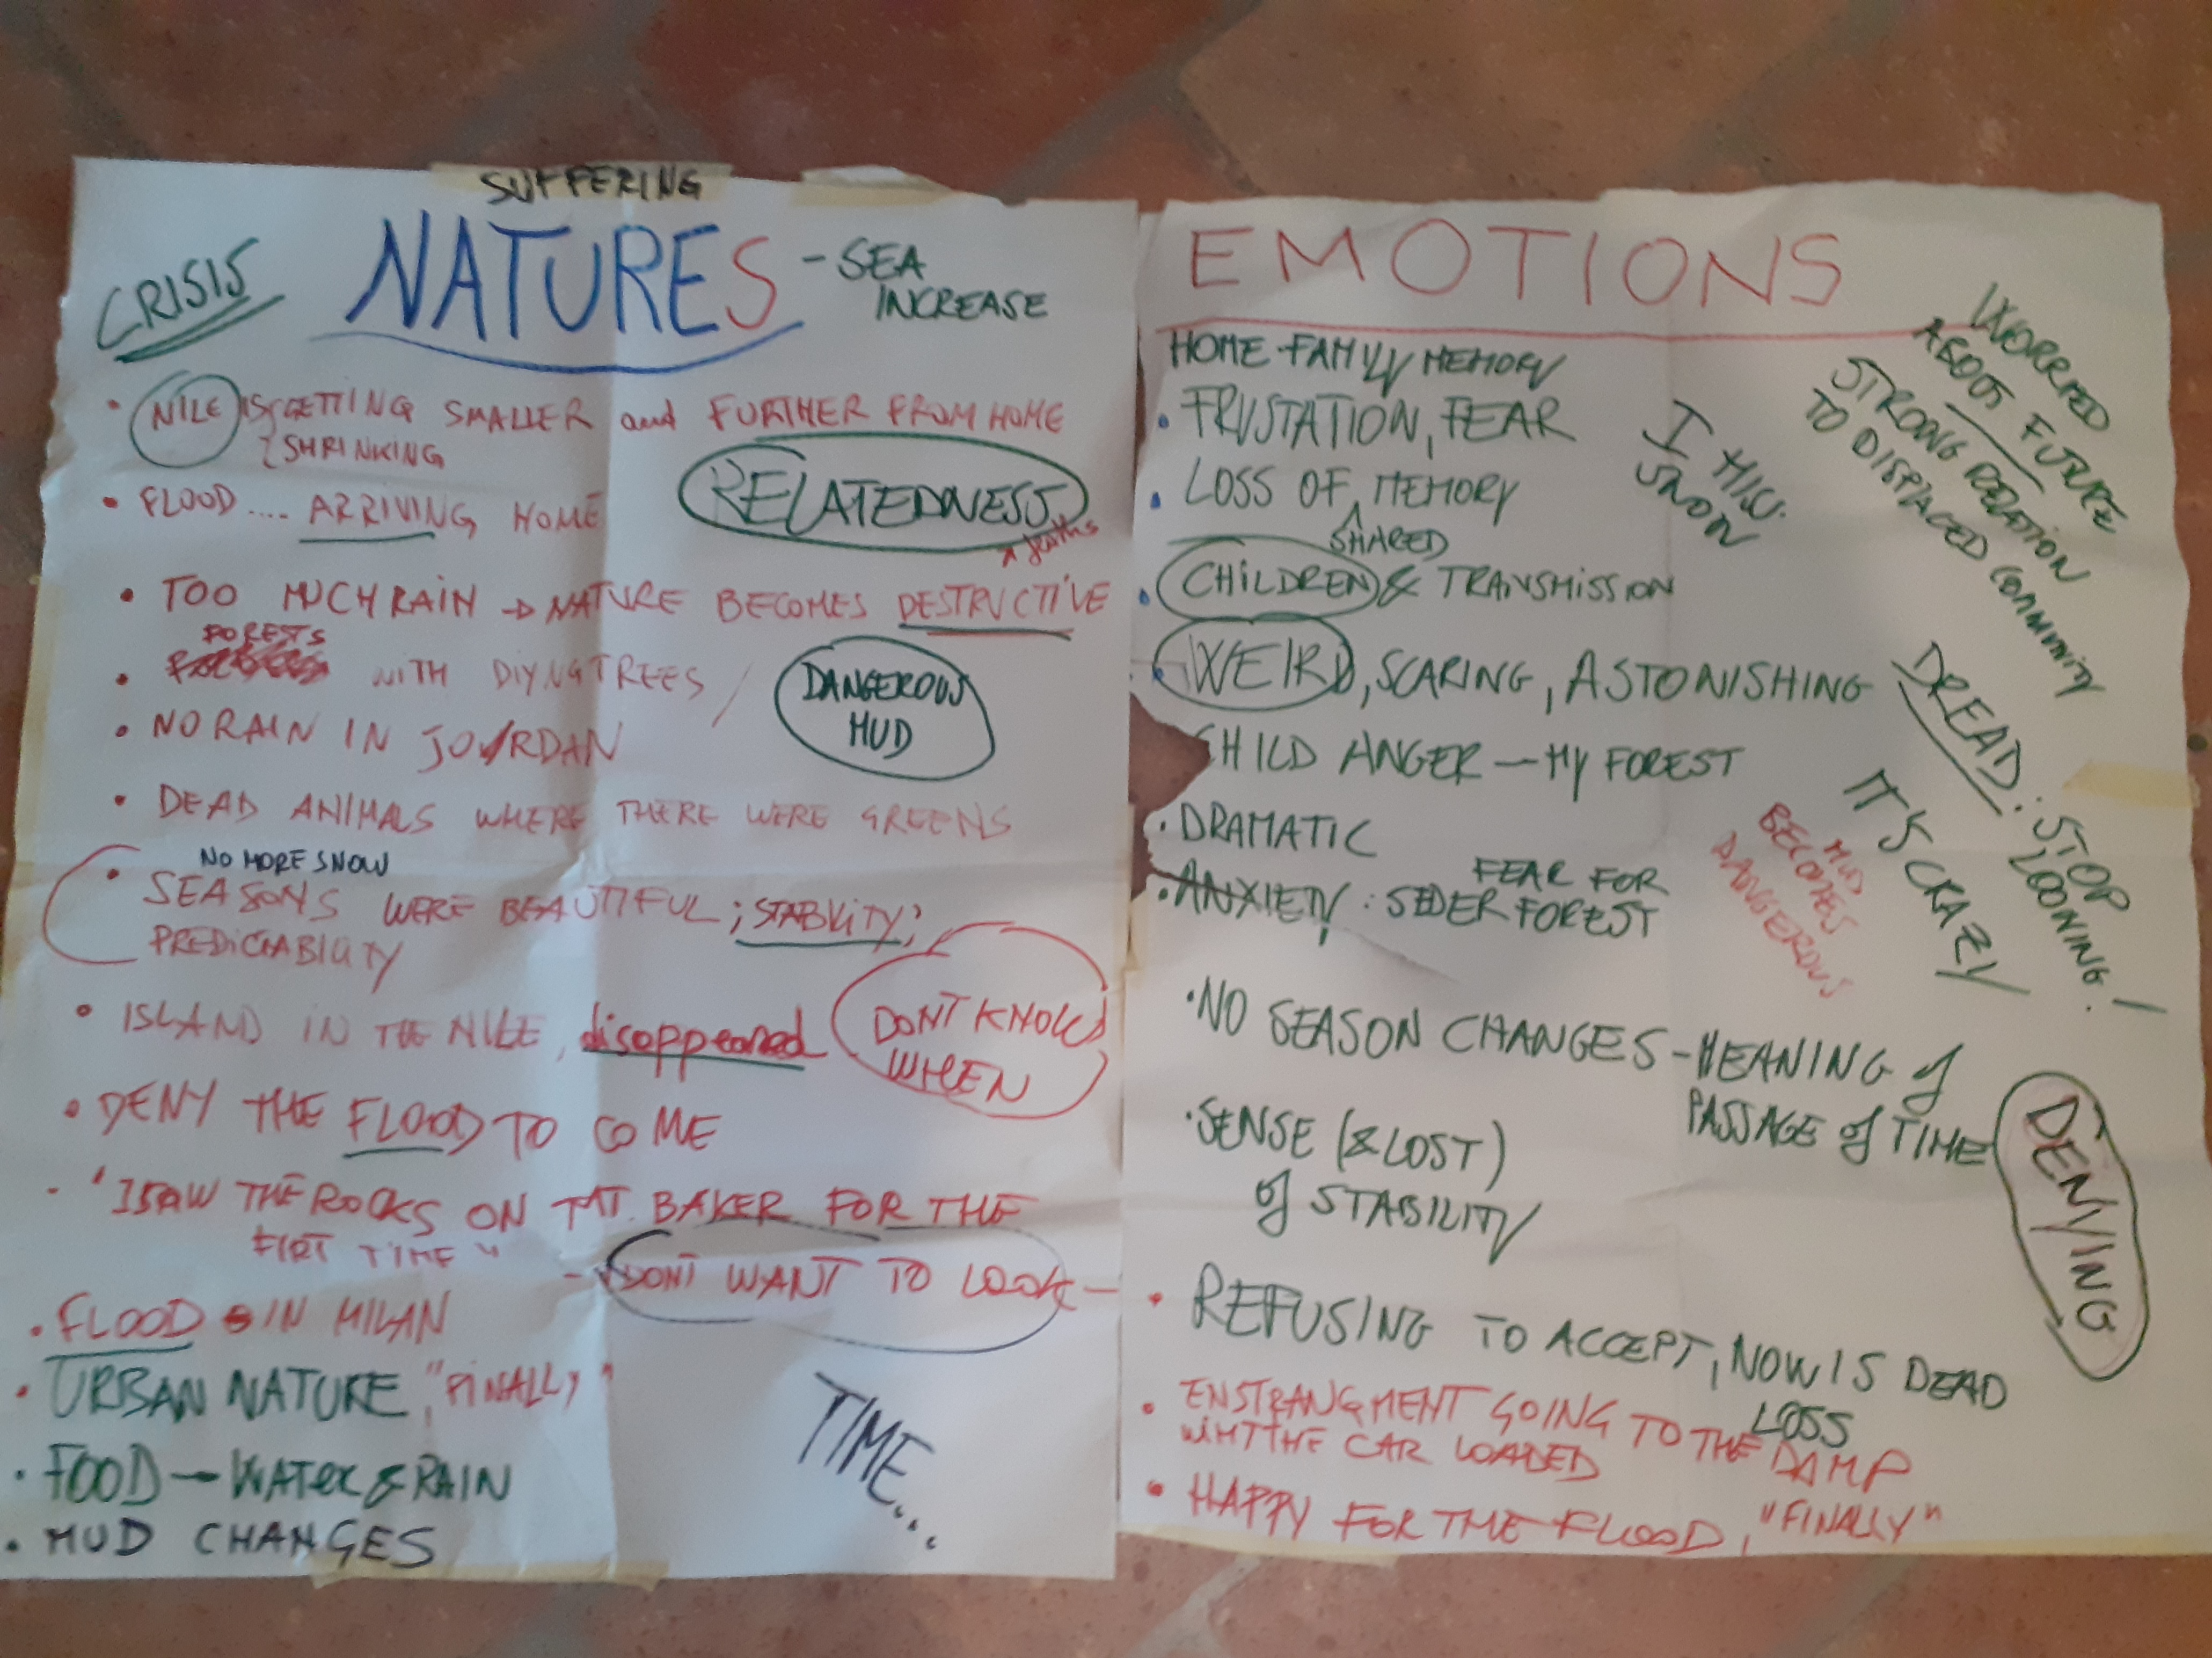 SUFFERING
CRISIS
NATURES
- SEA
INCREASE
• NILE IS GETTING SMALLER and FURTHER FROM HOME
SHRINKING
RELATEDNESS
• FLOOD .... ARRIVING HOME
• TOO MUCH RAIN → NATURE BECOMES DESTRUCTIVE
FORESTS
• WITH DIYNG TREES /
DANGEROUS
MUD
• NO RAIN IN JOURDAN
• DEAD ANIMALS WHERE THERE WERE GREENS
NO MORE SNOW
• SEASONS WERE BEAUTIFUL; STABILITY;
PREDICTABILITY
• ISLAND IN THE NILE, disappeared
DONT KNOW
WHEN
• DENY THE FLOOD TO COME
- "I SAW THE ROCKS ON MT. BAKER FOR THE
FIRT TIME"
- DONT WANT TO LOOK -
• FLOOD IN MILAN
• URBAN NATURE, "FINALLY"
• FOOD → WATER & RAIN
• MUD CHANGES
TIME...
EMOTIONS
HOME FAMILY MEMORY
• FRUSTATION, FEAR
• LOSS OF MEMORY
SHARED
• CHILDREN & TRANSMISSION
• WEIRD, SCARING, ASTONISHING
CHILD ANGER — MY FOREST
• DRAMATIC
FEAR FOR
• ANXIETY : SEDER FOREST
• NO SEASON CHANGES - MEANING of
PASSAGE of TIME
• SENSE (& LOST)
of STABILITY
• REFUSING TO ACCEPT, NOW IS DEAD
LOSS
• ENSTRANGMENT GOING TO THE DAMP
WHTTHE CAR LOADED
• HAPPY FOR THE FLOOD, "FINALLY"
I MISS
SNOW
WORRIED
ABOUT FUTURE
STRONG RELATION
TO DISPLACED COMMUNITY
DREAD: STOP
LOONING!
IT'S CRAZY
MUD
BECOMES
DANGEROUS
DENYING